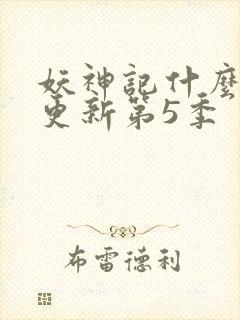 妖神記什麼
更新第5季
布雷德利